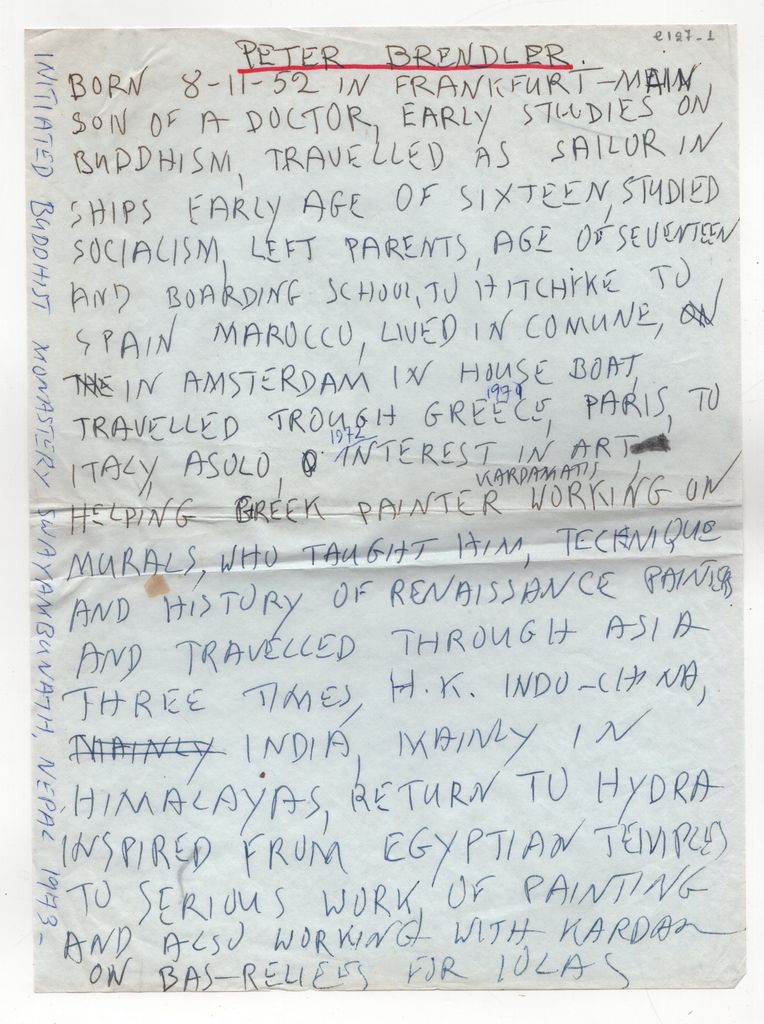 e127-1
PETER BRENDLER.
BORN 8-11-52 IN FRANKFURT-MAIN,
SON OF A DOCTOR, EARLY STUDIES ON
BUDDHISM, TRAVELLED AS SAILOR IN
SHIPS EARLY AGE OF SIXTEEN, STUDIED
SOCIALISM, LEFT PARENTS, AGE OF SEVENTEEN
AND BOARDING SCHOOL, TO HITCHIKE TO
SPAIN MAROCCO, LIVED IN COMUNE, ON
THE IN AMSTERDAM IN HOUSE BOAT,
TRAVELLED TROUGH GREECE, PARIS, TO
ITALY, ASOLO, 1972 INTEREST IN ART,
KARDAMATIS
HELPING GREEK PAINTER WORKING ON
MURALS, WHO TAUGHT HIM, TECHNIQUE
AND HISTORY OF RENAISSANCE PAINTERS
AND TRAVELLED THROUGH ASIA
THREE TIMES, H.K. INDO-CHINA,
MAINLY INDIA, MAINLY IN
HIMALAYAS, RETURN TO HYDRA
INSPIRED FROM EGYPTIAN TEMPLES
TO SERIOUS WORK, OF PAINTING
AND ALSO WORKING WITH KARDAM
ON BAS-RELIEFS FOR IOLAS
INITIATED BUDDHIST MONASTERY SWAYAMBUNATH, NEPAL 1973-